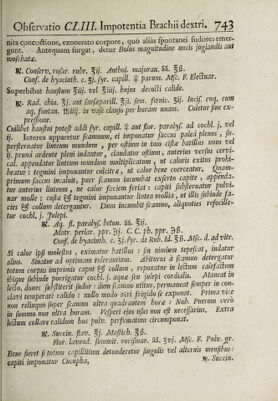 Observatio CLIII. Impotentia Brachii dextri. 743
tita concoctione, exonerato corpore, quò aliàs spontanei sudores emer-
gunt. Antequam surgat, detur Bolus magnitudine nucis juglandis aut
moschatæ.
℞. Conserv. rosar. rubr. ℥ij. Anthos. majoran. āā. ℥ß.
Conf. de hyacinth. c. ʒj. syr. capill. ♀ parum. Msc. F. Electuar.
Superbibat haustum ℥iij. vel ℥iiij. hujus decocti calidè.
℞. Rad. chin. ℥j. aut sarsaparill. ℥ij. sem. fœnic. ʒij. Incis. coq. cum
aq. fontan. in vase clauso per horam unam. Coletur sine ex-
pressione.
Cuilibet haustui potest addi syr. capill. ♀ aut flor. paralys. ad cochl. j. vel
ij. Interea appawetur scamnum, ei imponatur saccus paleâ plenus, su-
persternatur linteum mundum, per ostium in imo cistæ batillus unus vel
ij. prunâ ardente pleni indantur, claudatur ostium, anterius versùs cervi-
cal. appendatur linteum mundum multiplicatum, ut caloris exitus prohi-
beatur: tegmini imponantur culcitra, ut calor bene coerceatur. Quam-
primùm saccus incaluit, puer scamno incumbat exserto capite, appenda-
tur anterius linteum, ne calor faciem feriat: capiti substernatur pulvi-
nar molle: cistæ & tegmini imponantur lintea mollia, ut illis subinde fa-
cies & collum detergantur. Dum incumbit scamno, aliquoties refocille-
tur cochl. j. Julepi.
℞. Aq. fl. paralys. beton. āā. ℥ij.
Matr. perlar. ppr. ℈j. C. C. ph. ppr. ℈ß.
Conf. de hyacinth. c. ʒj. syr. de Rub. Id. ℥ß. Msc. d. ad vitr.
Si calor ipsi molestus, eximatur batillus: sin nimium tepescat, indatur
alius. Sinatur ad optimam tolerantiam. Abituros à scamno detergatur
totum corpus imprimis caput & collum, reponatur in lectum calefactum
ibique subinde porrigatur cochl. j. aquæ seu julepi cordialis. Maneat in
lecto, donec substiterit sudor: dum scamno utitur, permaneat semper in con-
clavi temperatè calido: nullo modo aëri frigido se exponat. Primâ vice
non relinquo super scamno ultra quadrantem horæ: Nob. Puerum verò
in summo non ultra horam. Vesperi ejus usus non est necessarius. Extra
lectum collare calidum hoc pulv. perfumatum circumponat.
℞. Succin. flav. ʒj. Mastich. ʒß.
Flor. lavend. summit. rorismar. āā. ʒvj. Msc. F. Pulv. gr.
Benè fieret si totum capillitium detonderetur singulis vel alternis mensibus:
capiti imponatur Cucupha,
℞. Succin.